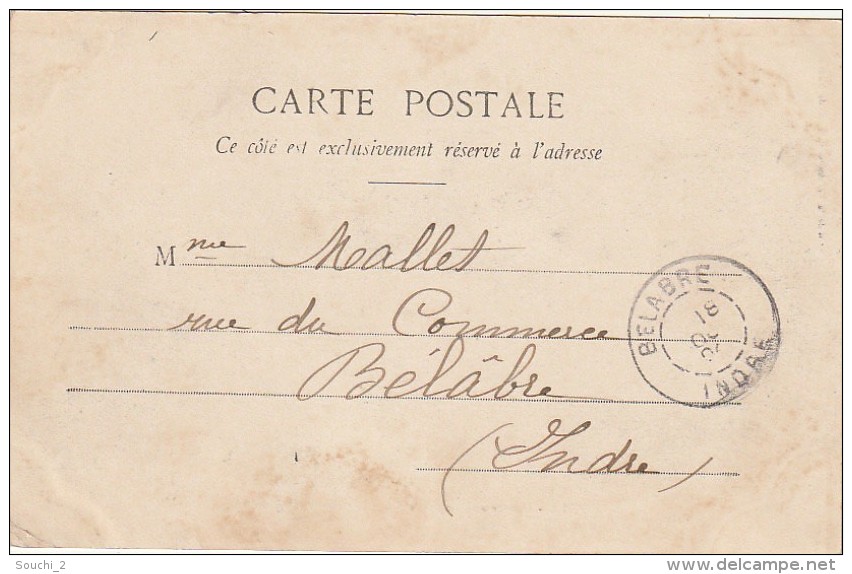 CARTE POSTALE
Ce côté est exclusivement réservé à l'adresse
Mme Mallet
rue du Commerce
Bélâbre
(Indre)
BELABRE
18
INDRE
Souchi_2
delcampe.net